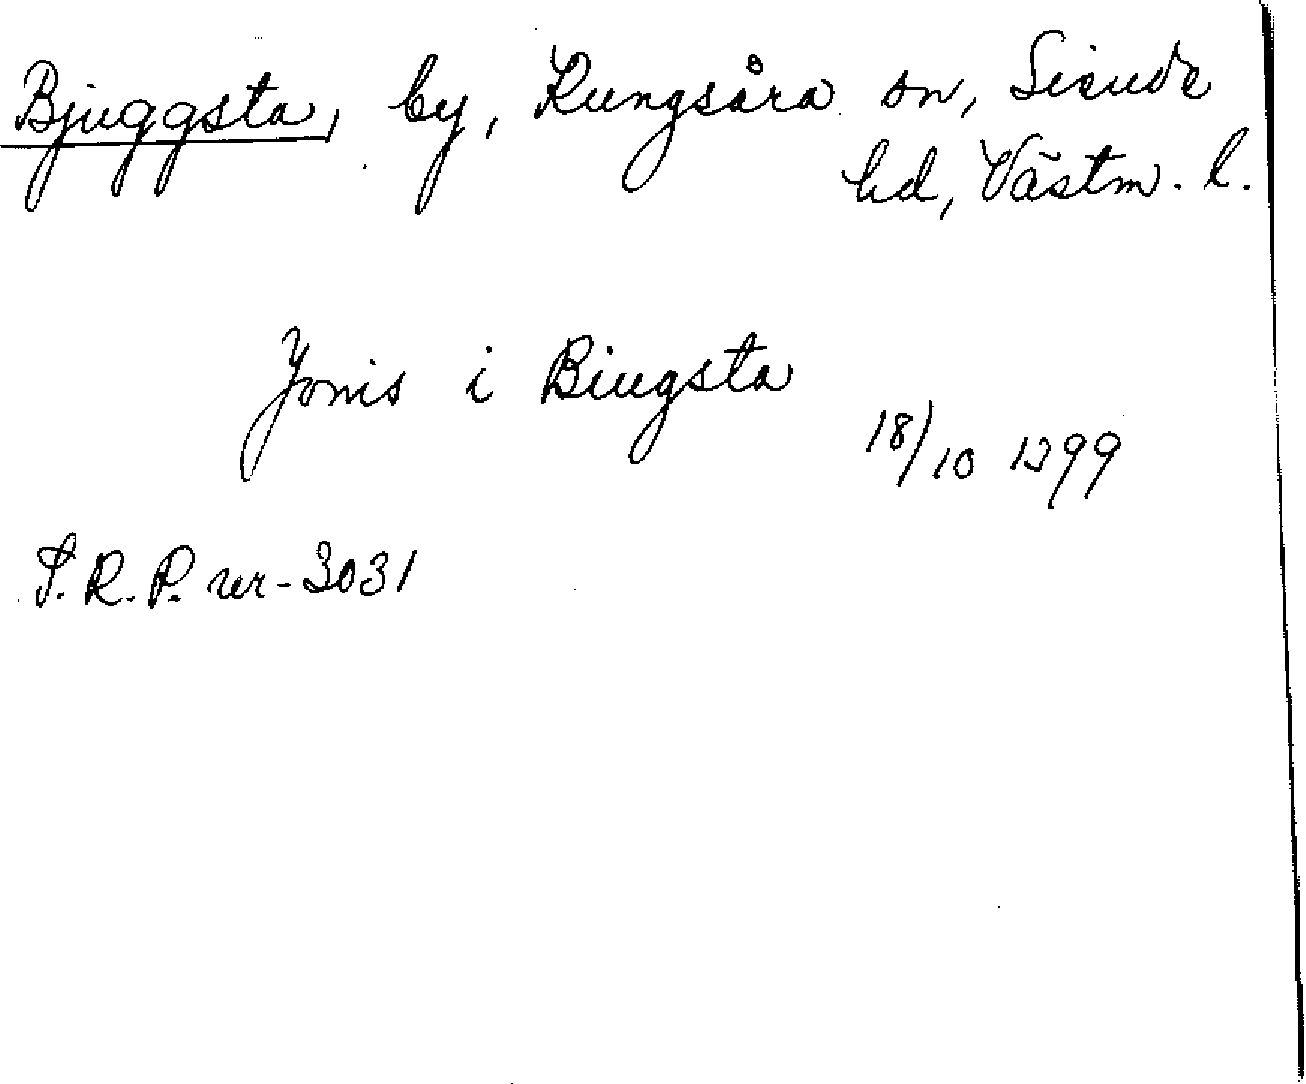 Bjuggsta, by, Kungsåra sn, Siende
hd, Västm. l.
Jonis i Biugsta
18/10 1399
S.R.P. nr - 3031